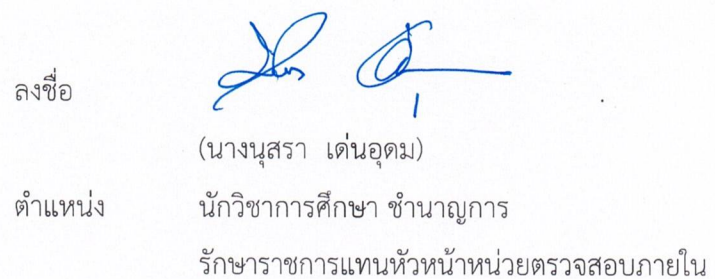 ลงชื่อ
(นางนุสรา เด่นอุดม)
ตำแหน่ง นักวิชาการศึกษา ชำนาญการ
รักษาราชการแทนหัวหน้าหน่วยตรวจสอบภายใน